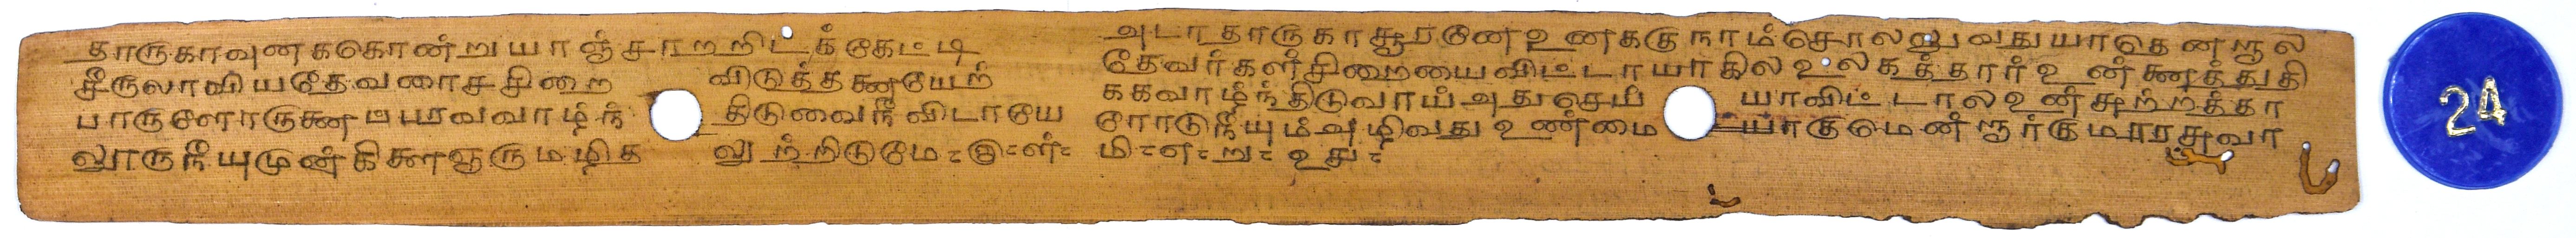 தாருகாவுனககொன்றுயாஞ்சாறறிடக்கேட்டி
சீருலாவியதேவரைசசிறை விடுத்தனையேற்
பாருளோருனைப்பரவவாழ்ந் திடுவைநீவிடாயே
லூருநீயுமுன்கிளைஞருமழித லுற்றிடுமே
அடாதாருகாசூரனே உனககுநாம்சொலலுவதுயாதெனறால
தேவர்கள்சிறையைவிட்டாயாகிலஉலகத்தாரஉன்னைத்துதி
ககவாழ்ந்திடுவாய்அதுசெய் யாவிட்டாலஉன்சுற்றத்தா
ரோடுநீயும்அழிவதுஉண்மை யாகுமென்றார்குமாரசுவா
மி எ று உது
24